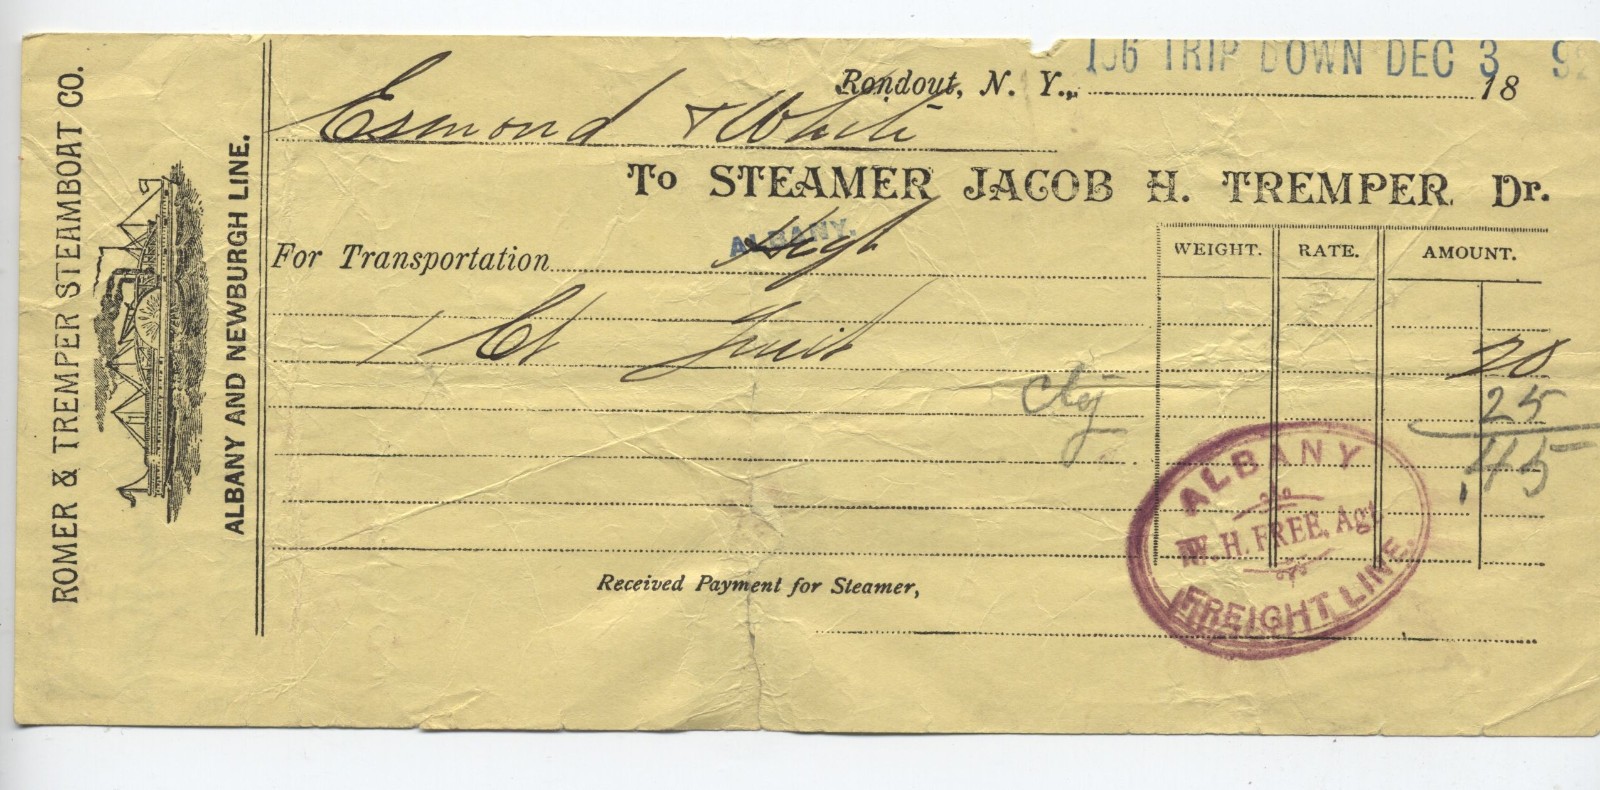 ROMER & TREMPER STEAMBOAT CO.
ALBANY AND NEWBURGH LINE.
106 TRIP DOWN DEC 3 92
Rondout, N. Y., 18
Esmond & White
To STEAMER JACOB H. TREMPER, Dr.
For Transportation ALBANY.
WEIGHT. RATE. AMOUNT.
1 Ct Fruit 20
Chg 25
.45
ALBANY
W. H. FREE, Agt
FREIGHT LINE.
Received Payment for Steamer,